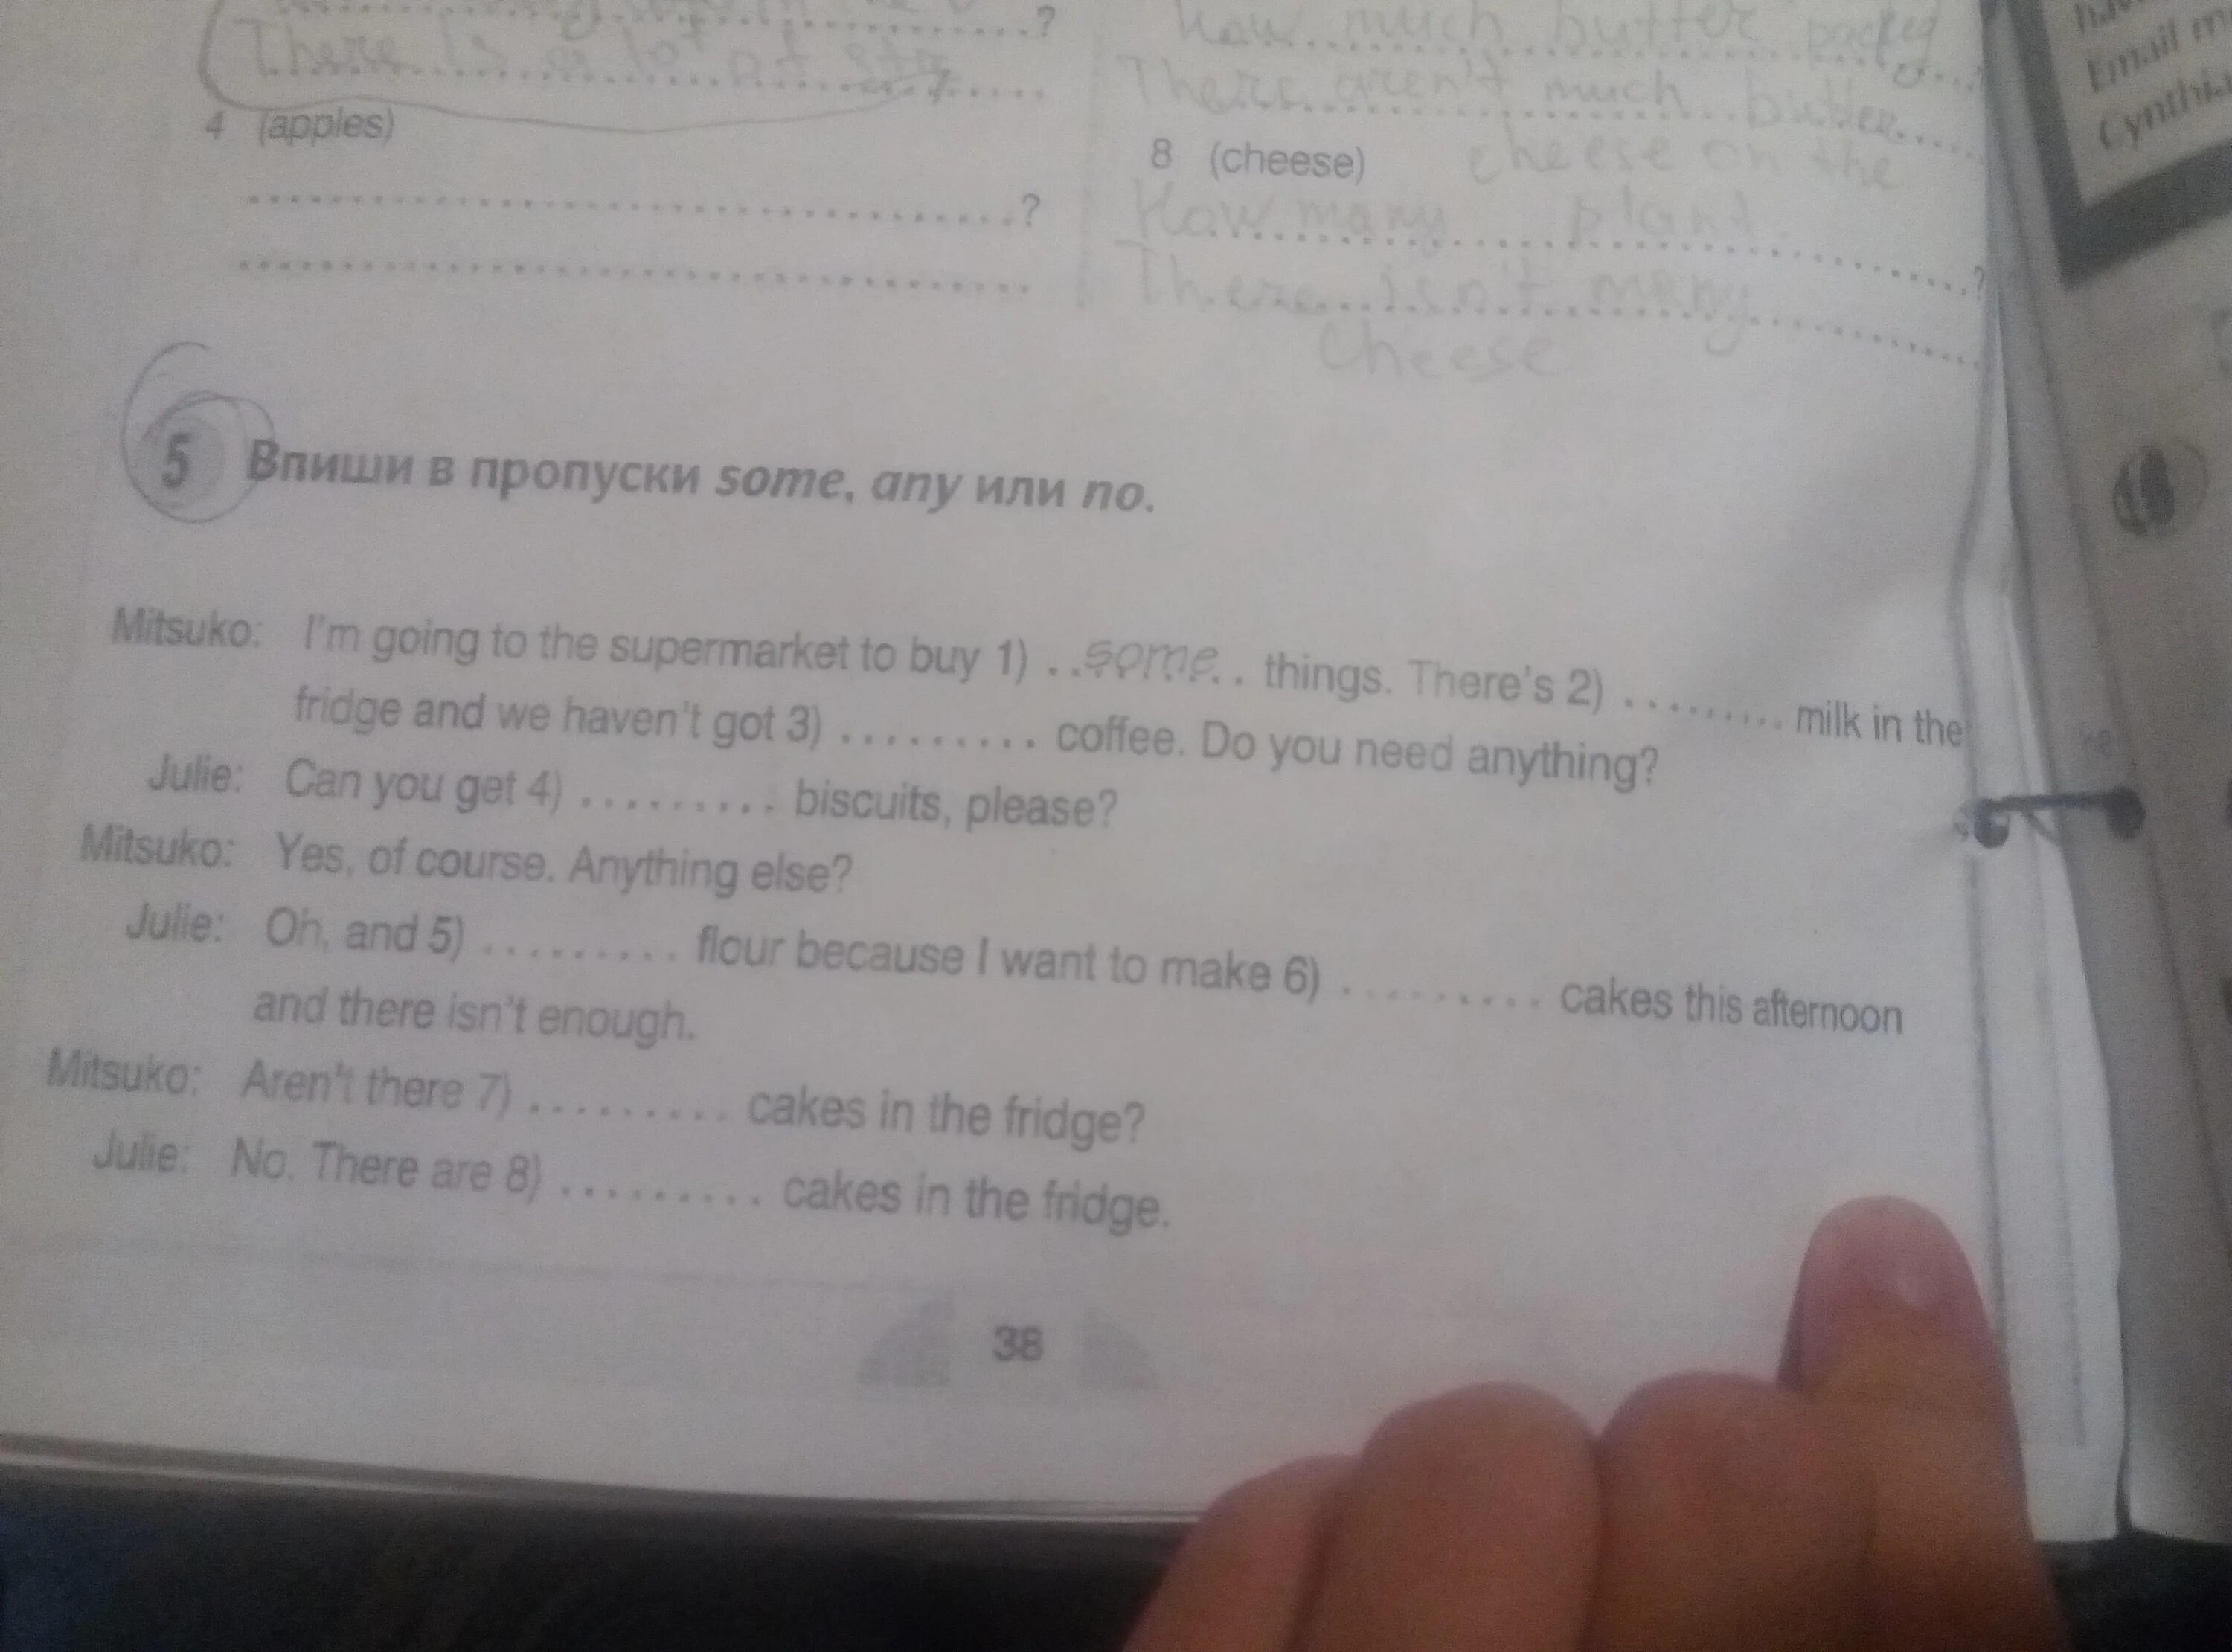 ?
There is a lot of
How much butter
There aren't much butter
4 (apples)
?
8 (cheese) cheese on the
How many plant
?
There isn't many
cheese
5 Впиши в пропуски some, any или no.
Mitsuko: I'm going to the supermarket to buy 1) ..some.. things. There's 2) ......... milk in the
fridge and we haven't got 3) ......... coffee. Do you need anything?
Julie: Can you get 4) ......... biscuits, please?
Mitsuko: Yes, of course. Anything else?
Julie: Oh, and 5) ......... flour because I want to make 6) ......... cakes this afternoon
and there isn't enough.
Mitsuko: Aren't there 7) ......... cakes in the fridge?
Julie: No. There are 8) ......... cakes in the fridge.
38
Email
Cynthia